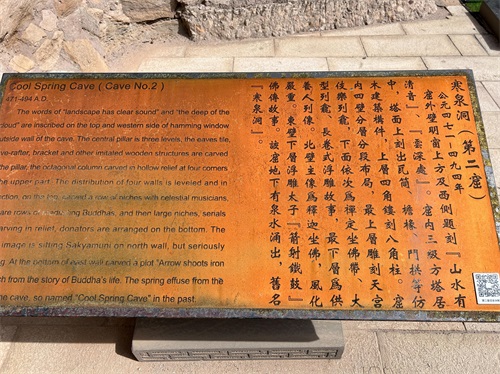 Cool Spring Cave ( Cave No.2 )
471-494 A.D.
The words of "landscape has clear sound" and "the deep of the
cloud" are inscribed on the top and western side of hamming window
outside wall of the cave. The central pillar is three levels, the eaves tile,
eave-rafter, bracket and other imitated wooden structures are carved
the pillar, the octagonal column carved in hollow relief at four corners
the upper part. The distribution of four walls is leveled and in
section, on the top carved a row of niches with celestial musicians,
are rows of meditating Buddhas, and then large niches, serials
carving in relief, donators are arranged on the bottom. The
image is sitting Sakyamuni on north wall, but seriously
At the bottom of east wall carved a plot "Arrow shoots iron
from the story of Buddha's life. The spring effuse from the
the cave, so named "Cool Spring Cave" in the past.
寒泉洞（第二窟）
公元四七一-四九四年
窟外壁明窗上方及西側題刻『山水有
清音』、『雲深處』。窟内三級方塔居
中，塔面上刻出瓦筒、檐椽、斗拱等仿
木建築構件，上層四角鏤刻八角柱。窟
内四壁分層分段布局，最上層雕刻天宮
伎樂列龕，下面依次為禪定坐佛帶、大
型列龕、長卷式浮雕故事，最下層為供
養人列像。北壁主像為釋迦坐佛，風化
嚴重。東壁下層浮雕太子『箭射鐵鼓』
佛傳故事。該窟地下有泉水涌出，舊名
『寒泉洞』。